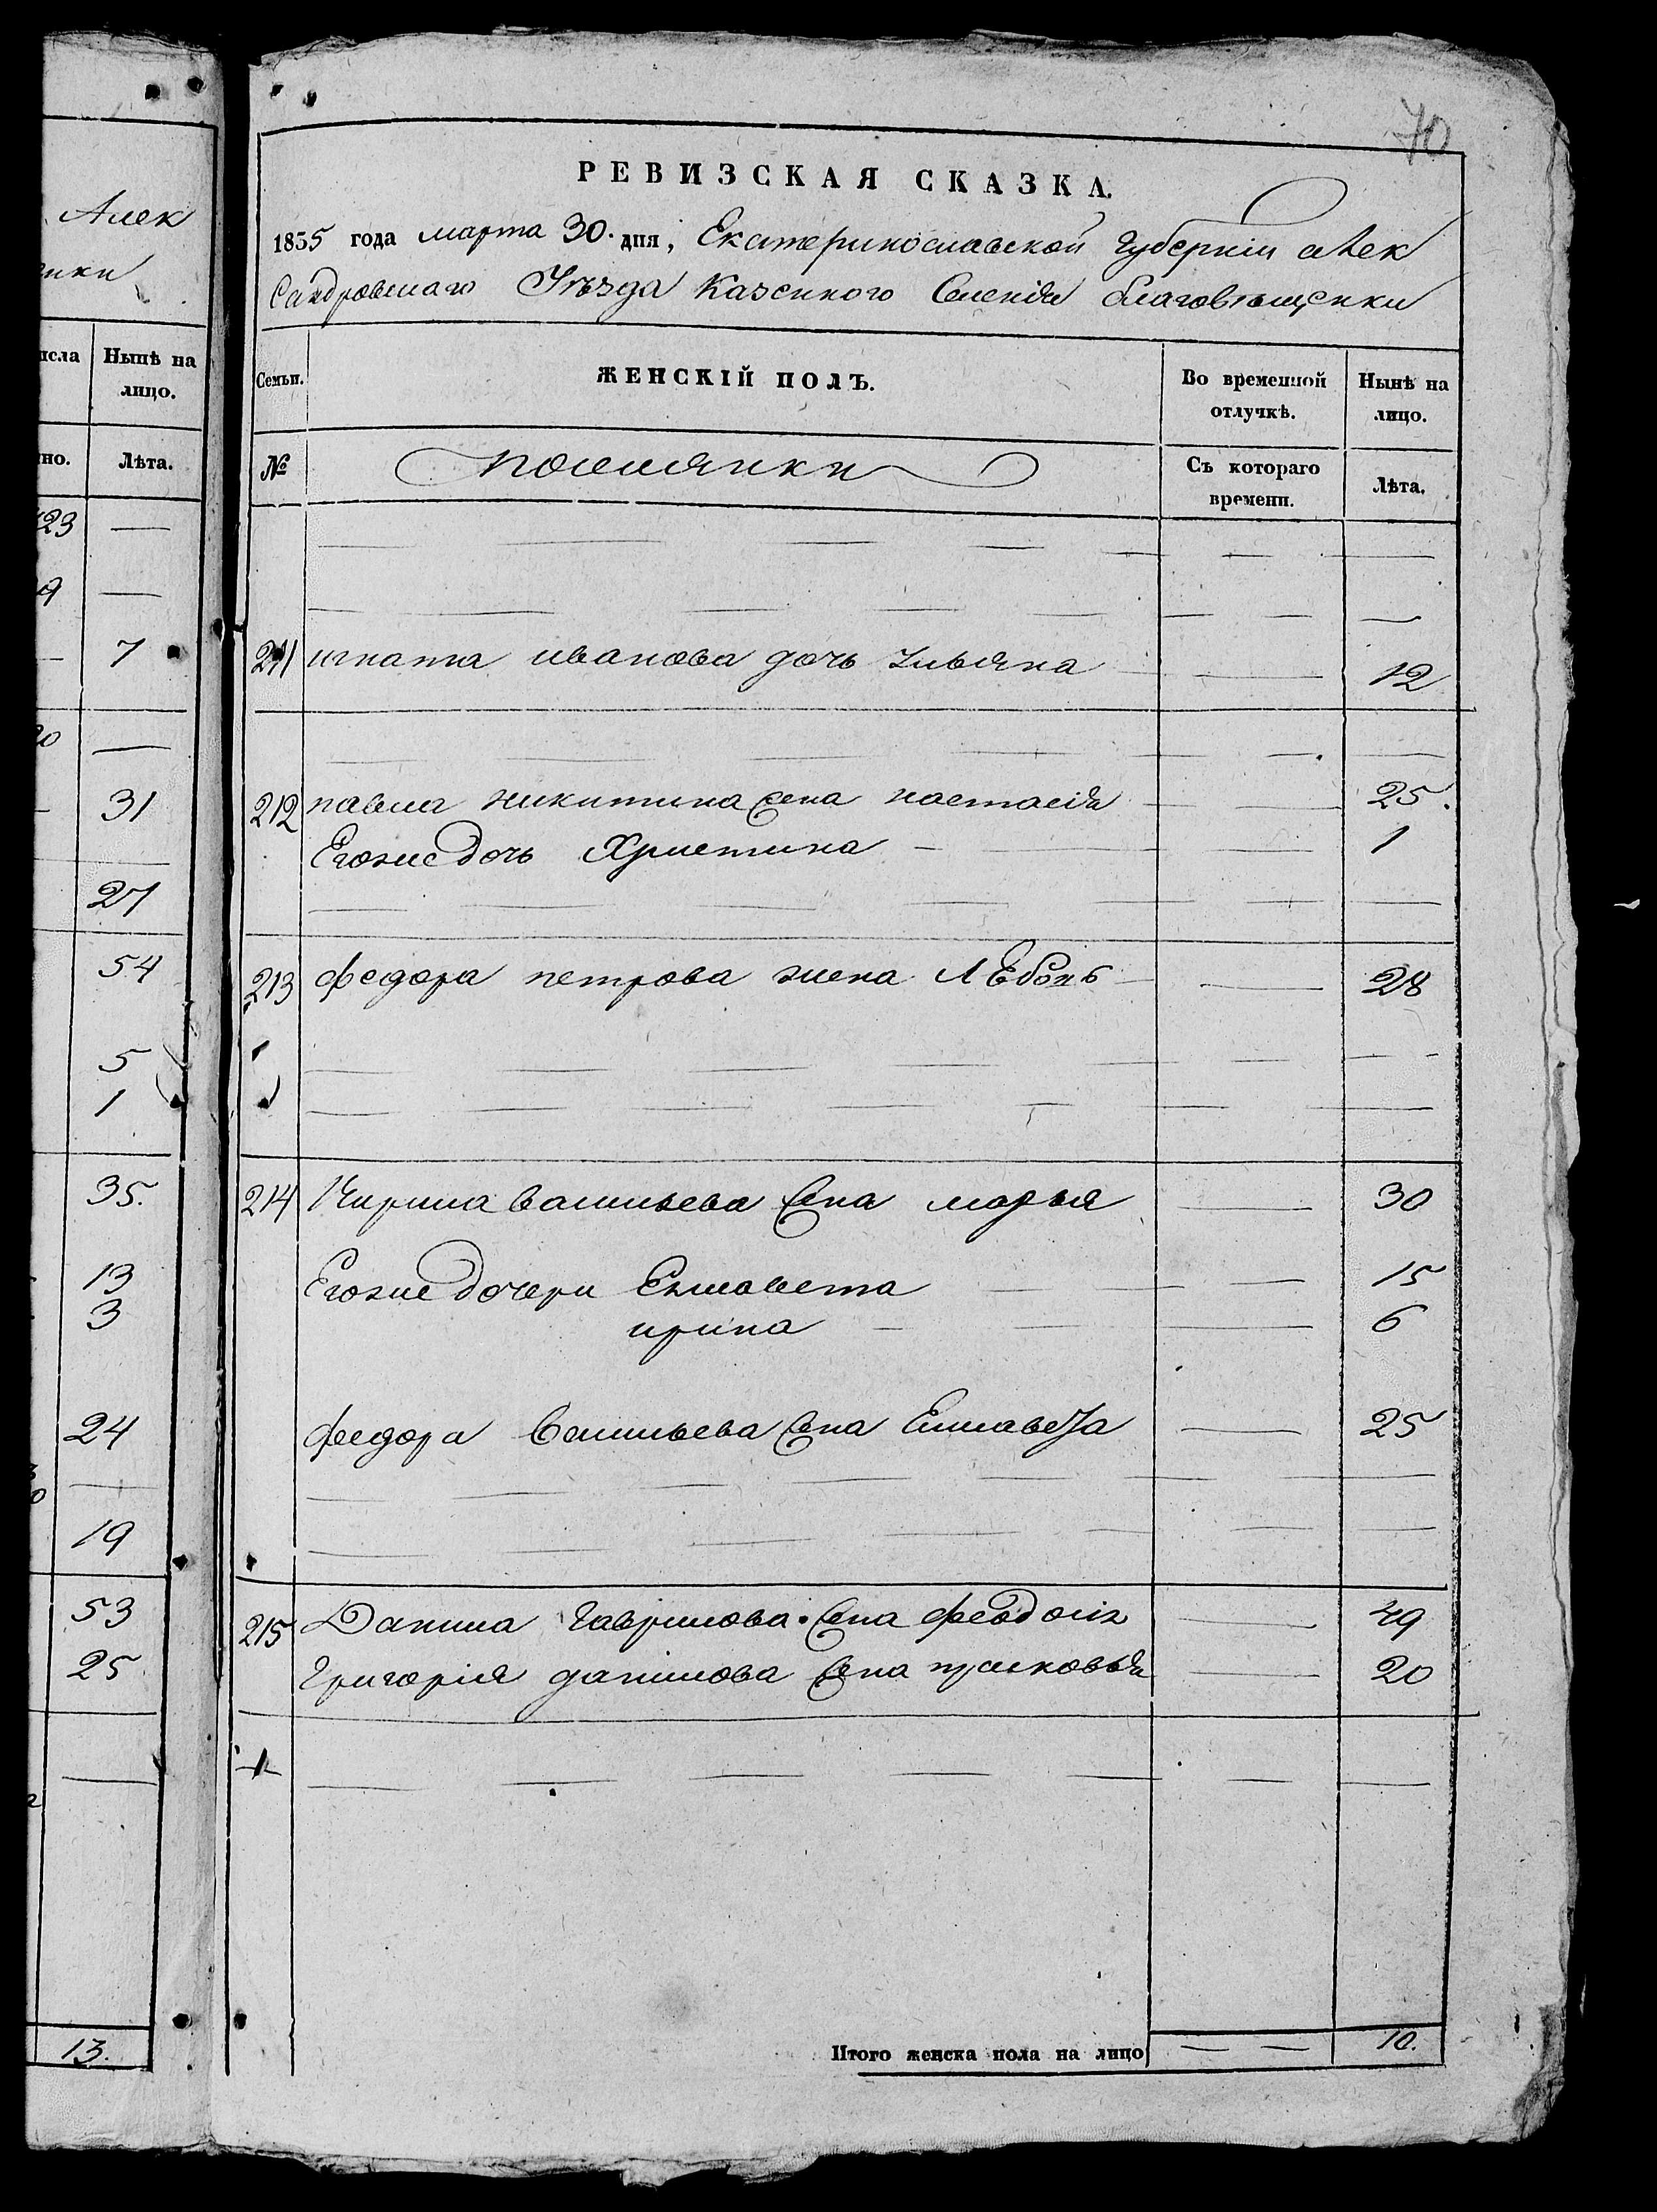 Алек
нки
исла
Нынѣ на
лицо.
но.
Лѣта.
23
—
9
—
7
—
31
27
54
5
1
35.
13
3
24
—
19
53
25
—
13.
70
РЕВИЗСКАЯ СКАЗКА.
1835 года марта 30. дня, Екатеринославской Губерніи Алек
сандровскаго Уѣзда Казенного Селенія благовѣщенки
Семьи.
ЖЕНСКІЙ ПОЛЪ.
Во временной отлучкѣ.
Нынѣ на лицо.
№
поселянки
Съ котораго времени.
Лѣта.
211 игната иванова дочь ульяна — 12
212 павла никитина жена настасія — 25.
Егоже дочь Христина — 1
213 федора петрова жена — 28
214 Кирила васильева жена марья — 30
Егоже дочери Елисавета — 15
ирина — 6
федора васильева жена Елисавета — 25
215 Данила Гаврилова жена феодосія — 49
Григорія данилова жена прасковья — 20
Итого женска пола на лицо — — 10.